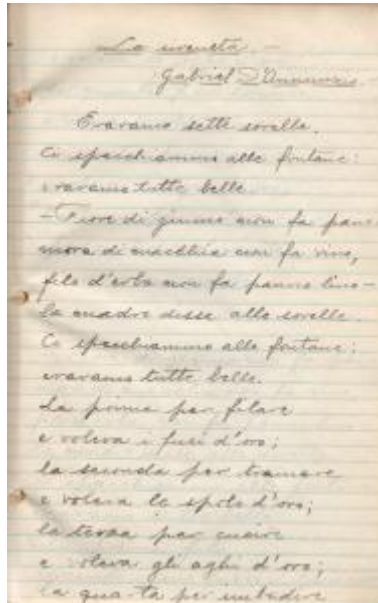 La
Gabriel D'Annunzio.-
Eravamo sette sorelle.
Ci specchiammo alle fontane:
eravamo tutte belle.
- Fiore di giunco non fa pane
mora di macchia non fa vino,
filo d'erba non fa panno lino -
la madre disse alle sorelle.
Ci specchiammo alle fontane:
eravamo tutte belle.
La prima per filare
e voleva i fusi d'oro;
la seconda per tramare
e voleva le spole d'oro;
la terza per cucire
e voleva gli aghi d'oro;
la quarta per imbandire